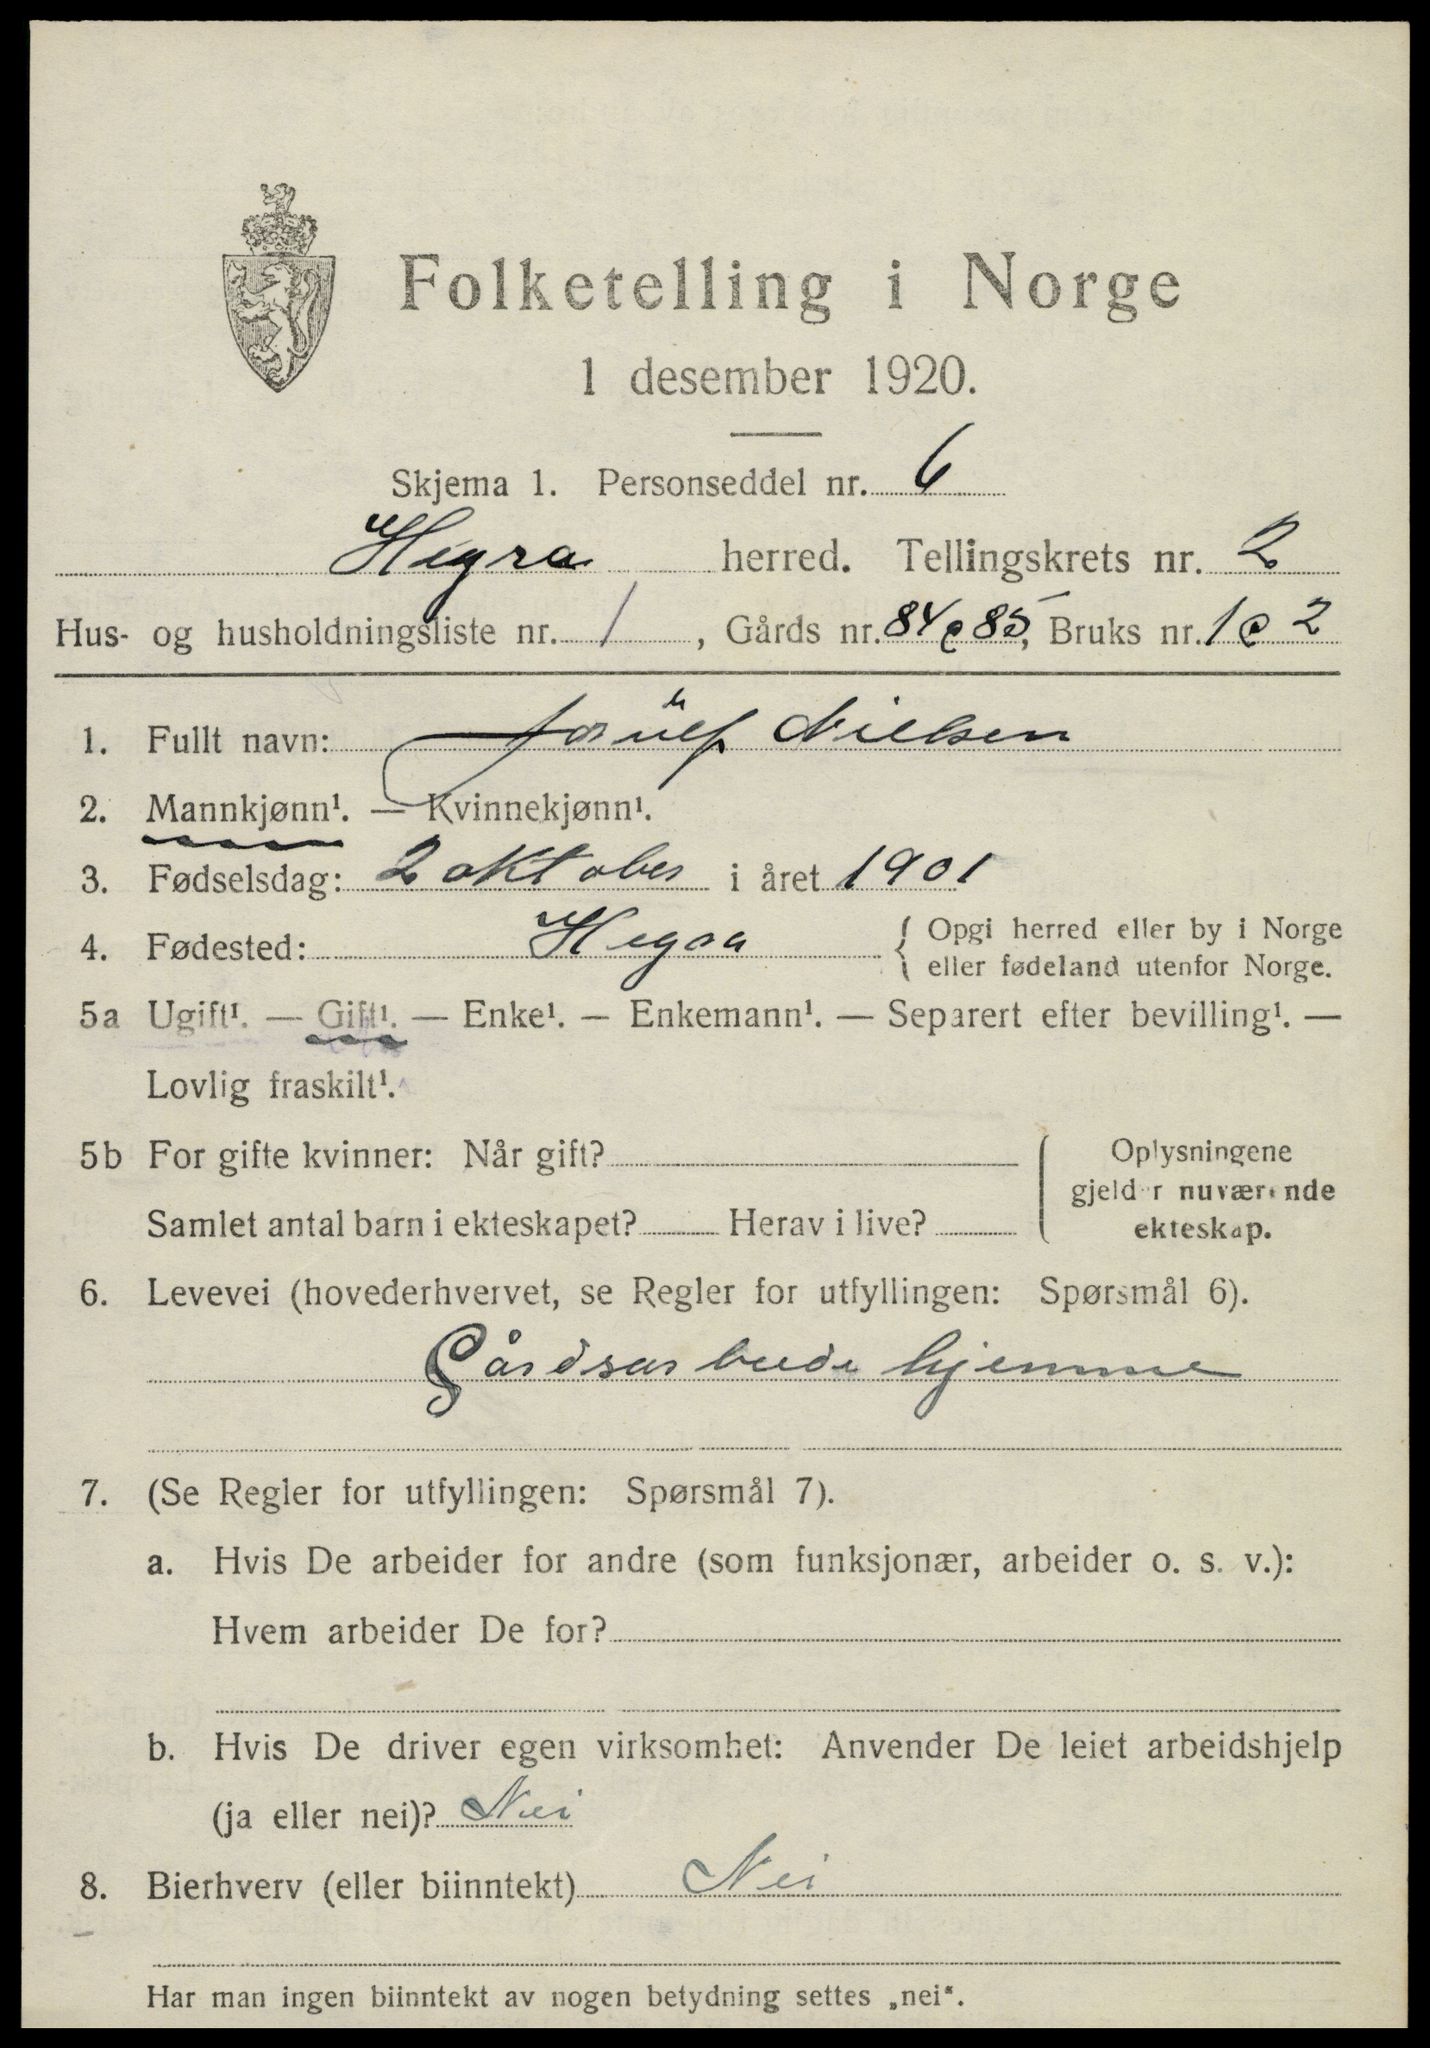 Folketelling i Norge
1 desember 1920.
Skjema 1. Personseddel nr. 6
Hegra herred. Tellingskrets nr. 2
Hus- og husholdningsliste nr. 1, Gårds nr. 84 e 85, Bruks nr. 1 e 2
1. Fullt navn: Nielsen
2. Mannkjønn¹. — Kvinnekjønn¹.
3. Fødselsdag: 2 oktober i året 1901
4. Fødested: Hegra { Opgi herred eller by i Norge
eller fødeland utenfor Norge.
5a Ugift¹. — Gift¹. — Enke¹. — Enkemann¹. — Separert efter bevilling¹. —
Lovlig fraskilt¹.
5b For gifte kvinner: Når gift?
Samlet antal barn i ekteskapet? Herav i live?
Oplysningene
gjelder nuværende
ekteskap.
6. Levevei (hovederhvervet, se Regler for utfyllingen: Spørsmål 6).
Gårdsarbeide hjemme
7. (Se Regler for utfyllingen: Spørsmål 7).
a. Hvis De arbeider for andre (som funksjonær, arbeider o. s. v.):
Hvem arbeider De for?
b. Hvis De driver egen virksomhet: Anvender De leiet arbeidshjelp
(ja eller nei)? Nei
8. Bierhverv (eller biinntekt) Nei
Har man ingen biinntekt av nogen betydning settes „nei“.